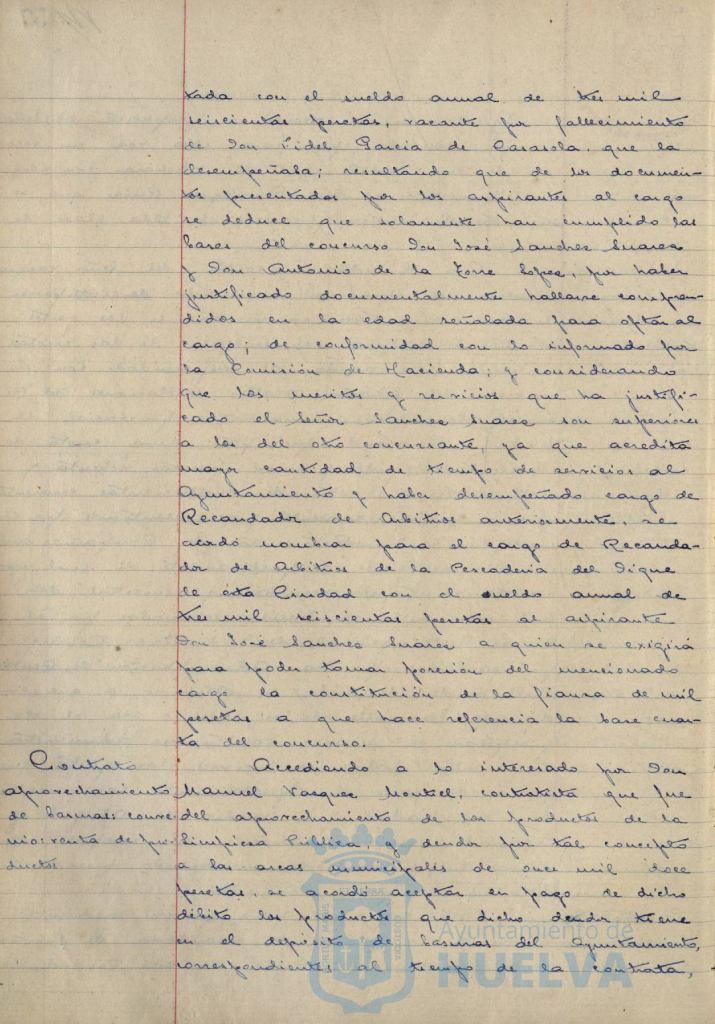 tada con el sueldo anual de tres mil
seiscientas pesetas, vacante por fallecimiento
de Don Fidel Garcia de Casasola, que la
desempeñaba; resultando que de los documen-
tos presentados por los aspirantes al cargo
se deduce que solamente han cumplido las
bases del concurso Don José Sanchez Suarez
y Don Antonio de la Torre Lopez, por haber
justificado documentalmente hallarse compren-
didos en la edad señalada para optar al
cargo; de conformidad con lo informado por
la Comisión de Hacienda; y considerando
que los meritos y servicios que ha justifi-
cado el Señor Sanchez Suarez son superiores
a los del otro concursante, ya que acredita
mayor cantidad de tiempo de servicios al
Ayuntamiento y haber desempeñado cargo de
Recaudador de Arbitrios anteriormente, se
acordó nombrar para el cargo de Recauda-
dor de Arbitrios de la Pescaderia del Dique
de esta Ciudad con el sueldo anual de
tres mil seiscientas pesetas al aspirante
Don José Sanchez Suarez a quien se exigirá
para poder tomar posesión del mencionado
cargo la constitución de la fianza de mil
pesetas a que hace referencia la base cuar-
ta del concurso.
Contrato
aprovechamiento
de basuras: conve-
nio: venta de pro-
ductos.
Accediendo a lo interesado por Don
Manuel Vazquez Montiel, contratista que fue
del aprovechamiento de los productos de la
Limpieza Pública, y deudor por tal concepto
a las arcas municipales de once mil doce
pesetas, se acordó aceptar en pago de dicho
débito los productos que dicho deudor tiene
en el depósito de basuras del Ayuntamiento,
correspondientes al tiempo de la contrata,
Ayuntamiento de
HUELVA